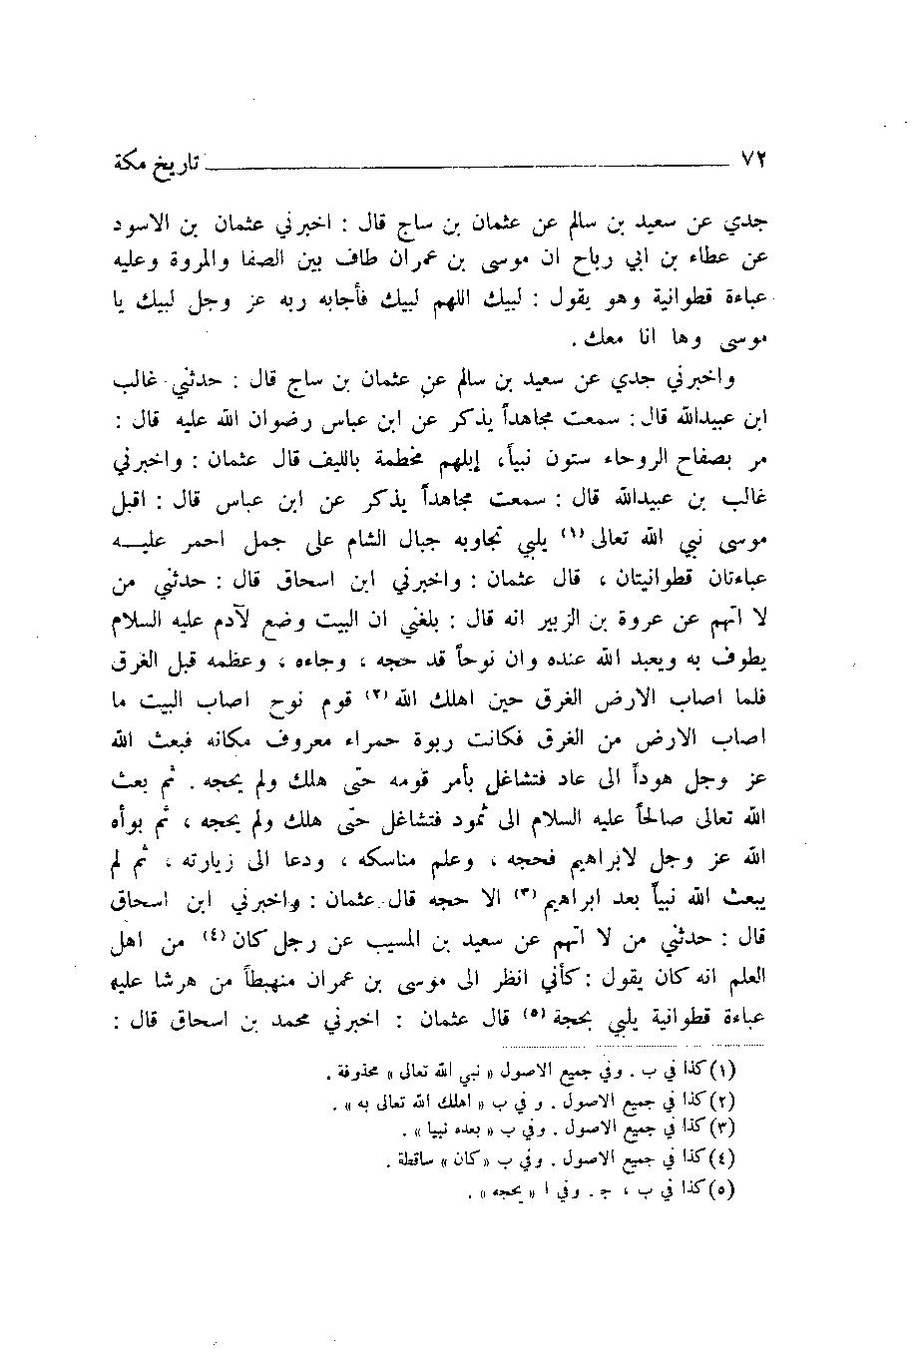 ٧٢ تاريخ مكة
جدي عن سعيد بن سالم عن عثمان بن ساج قال : اخبرني عثمان بن الاسود
عن عطاء بن ابي رباح ان موسى بن عمران طاف بين الصفا والمروة وعليه
عباءة قطوانية وهو يقول : لبيك اللهم لبيك فأجابه ربه عز وجل لبيك يا
موسى وها انا معك .
واخبرني جدي عن سعيد بن سالم عن عثمان بن ساج قال : حدثني غالب
ابن عبيدالله قال : سمعت مجاهداً يذكر عن ابن عباس رضوان الله عليه قال :
مر بصفاح الروحاء ستون نبياً، إبلهم مخطمة بالليف قال عثمان : واخبرني
غالب بن عبيدالله قال : سمعت مجاهداً يذكر عن ابن عباس قال : اقبل
موسى نبي الله تعالى (١) يلبي تجاوبه جبال الشام على جمل احمر عليـــه
عباءتان قطوانيتان ، قال عثمان : واخبرني ابن اسحاق قال : حدثني من
لا اتهم عن عروة بن الزبير انه قال : بلغني ان البيت وضع لآدم عليه السلام
يطوف به ويعبد الله عنده وان نوحاً قد حجه ، وجاءه ، وعظمه قبل الغرق
فلما اصاب الارض الغرق حين اهلك الله (٢) قوم نوح اصاب البيت ما
اصاب الارض من الغرق فكانت ربوة حمراء معروف مكانه فبعث الله
عز وجل هوداً الى عاد فتشاغل بأمر قومه حتى هلك ولم يحجه . ثم بعث
الله تعالى صالحاً عليه السلام الى ثمود فتشاغل حتى هلك ولم يحجه ، ثم بوأه
الله عز وجل لابراهيم فحجه ، وعلم مناسكه ، ودعا الى زيارته ، ثم لم
يبعث الله نبياً بعد ابراهيم (٣) الا حجه قال عثمان : واخبرني ابن اسحاق
قال : حدثني من لا اتهم عن سعيد بن المسيب عن رجل كان (٤) من اهل
العلم انه كان يقول : كأني انظر الى موسى بن عمران منهبطاً من هرشا عليه
عباءة قطوانية يلبي بحجة (٥) قال عثمان : اخبرني محمد بن اسحاق قال :
(١) كذا في ب . وفي جميع الاصول « نبي الله تعالى » محذوفة .
(٢) كذا في جميع الاصول . و في ب « اهلك الله تعالى به » .
(٣) كذا في جميع الاصول . وفي ب « بعده نبيا » .
(٤) كذا في جميع الاصول . وفي ب « كان » ساقطة .
(٥) كذا في ب ، ج . وفي ا « بحجه » .